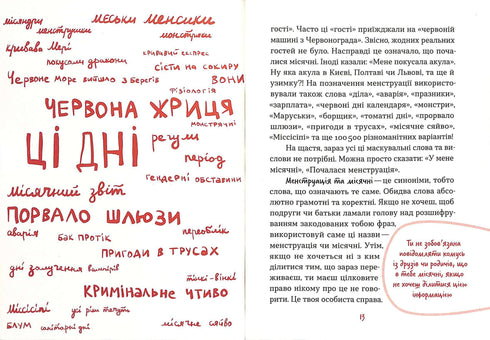 місяндри
МЕСЬКИ МЕНСИКИ
менструшки
монстрики
кривава Мері
кривавий експрес
покусали дракони
сісти на сокиру
Червоне море вийшло з берегів
ВОНИ
Фізіологія
ЧЕРВОНА ЖРИЦЯ
монстрячні
ЦІ ДНІ
регули
період
гендерні обставини
місячний звіт
ПОРВАЛО ШЛЮЗИ
аварія
бак протік
переоблік
ПРИГОДИ В ТРУСАХ
дні залучення вампірів
тілесі-вінкі
КРИМІНАЛЬНЕ ЧТИВО
Міссісіпі
усі ріки течуть
БЛУМ
санітарні дні
місячне сяйво
гості». Часто ці «гості» приїжджали на «червоній
машині з Червонограда». Звісно, жодних реальних
гостей не було. Насправді це означало, що почала-
лися місячні. Іноді казали: «Мене покусала акула».
Ну яка акула в Києві, Полтаві чи Львові, та ще й
узимку?! На позначення менструації використо-
вували також слова «діла», «аварія», «празники»,
«зарплата», «червоні дні календаря», «монстри»,
«Маруськи», «борщик», «томатні дні», «прорвало
шлюзи», «пригоди в трусах», «місячне сяйво»,
«Міссісіпі» та ще 100 500 різноманітних варіантів!
На щастя, зараз усі ці маскувальні слова та ви-
слови не потрібні. Можна просто сказати: «У мене
місячні», «Почалася менструація».
Менструація та місячні — це синоніми, тобто
слова, що означають те саме. Обидва слова абсо-
лютно грамотні та коректні. Якщо не хочеш, щоб
подруги чи батьки ламали голову над розшифру-
ванням закодованих тобою фраз,
використовуй саме ці назви —
менструація чи місячні. Утім,
якщо не хочеться ні з ким
ділитися тим, що зараз пере-
живаєш, ти маєш цілковите
право нікому про це не гово-
рити. Це твоя особиста справа.
Ти не зобов'язана
повідомляти комусь
із друзів чи родичів, що
в тебе місячні, якщо
не хочеш ділитися цією
інформацією
13